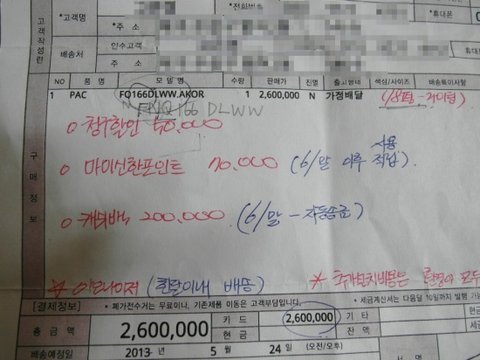 *고객명 *전화번호 *휴대폰
*주 소
고객작성란
배송처 인수고객 *
* 주 소
NO 품 명 모 델 명 수량 판매가 진열 출고형태 색상/사이즈 배송특이사항
1 PAC FQ166DLWW.AKOR 1 2,600,000 N 가정배달 (18평-
FNQ166 DLWW
구매정보
o 청구할인 50,000
o 마이신한포인트 70,000 (6/말 이후 사용 적립).
o 캐쉬백 200,000 (6/말 - 자동송금)
* (한달이내 배송) *
[결제정보] * 폐가전수거는 무료이나, 기존제품 이동은 고객부담입니다. * 세금계산서는 다음달 10일까지 발행
총 금 액 2,600,000 카 드 2,600,000 기 타
현 금 잔 액
배송예정일 2013년 5 월 24 일 (오전/오후)